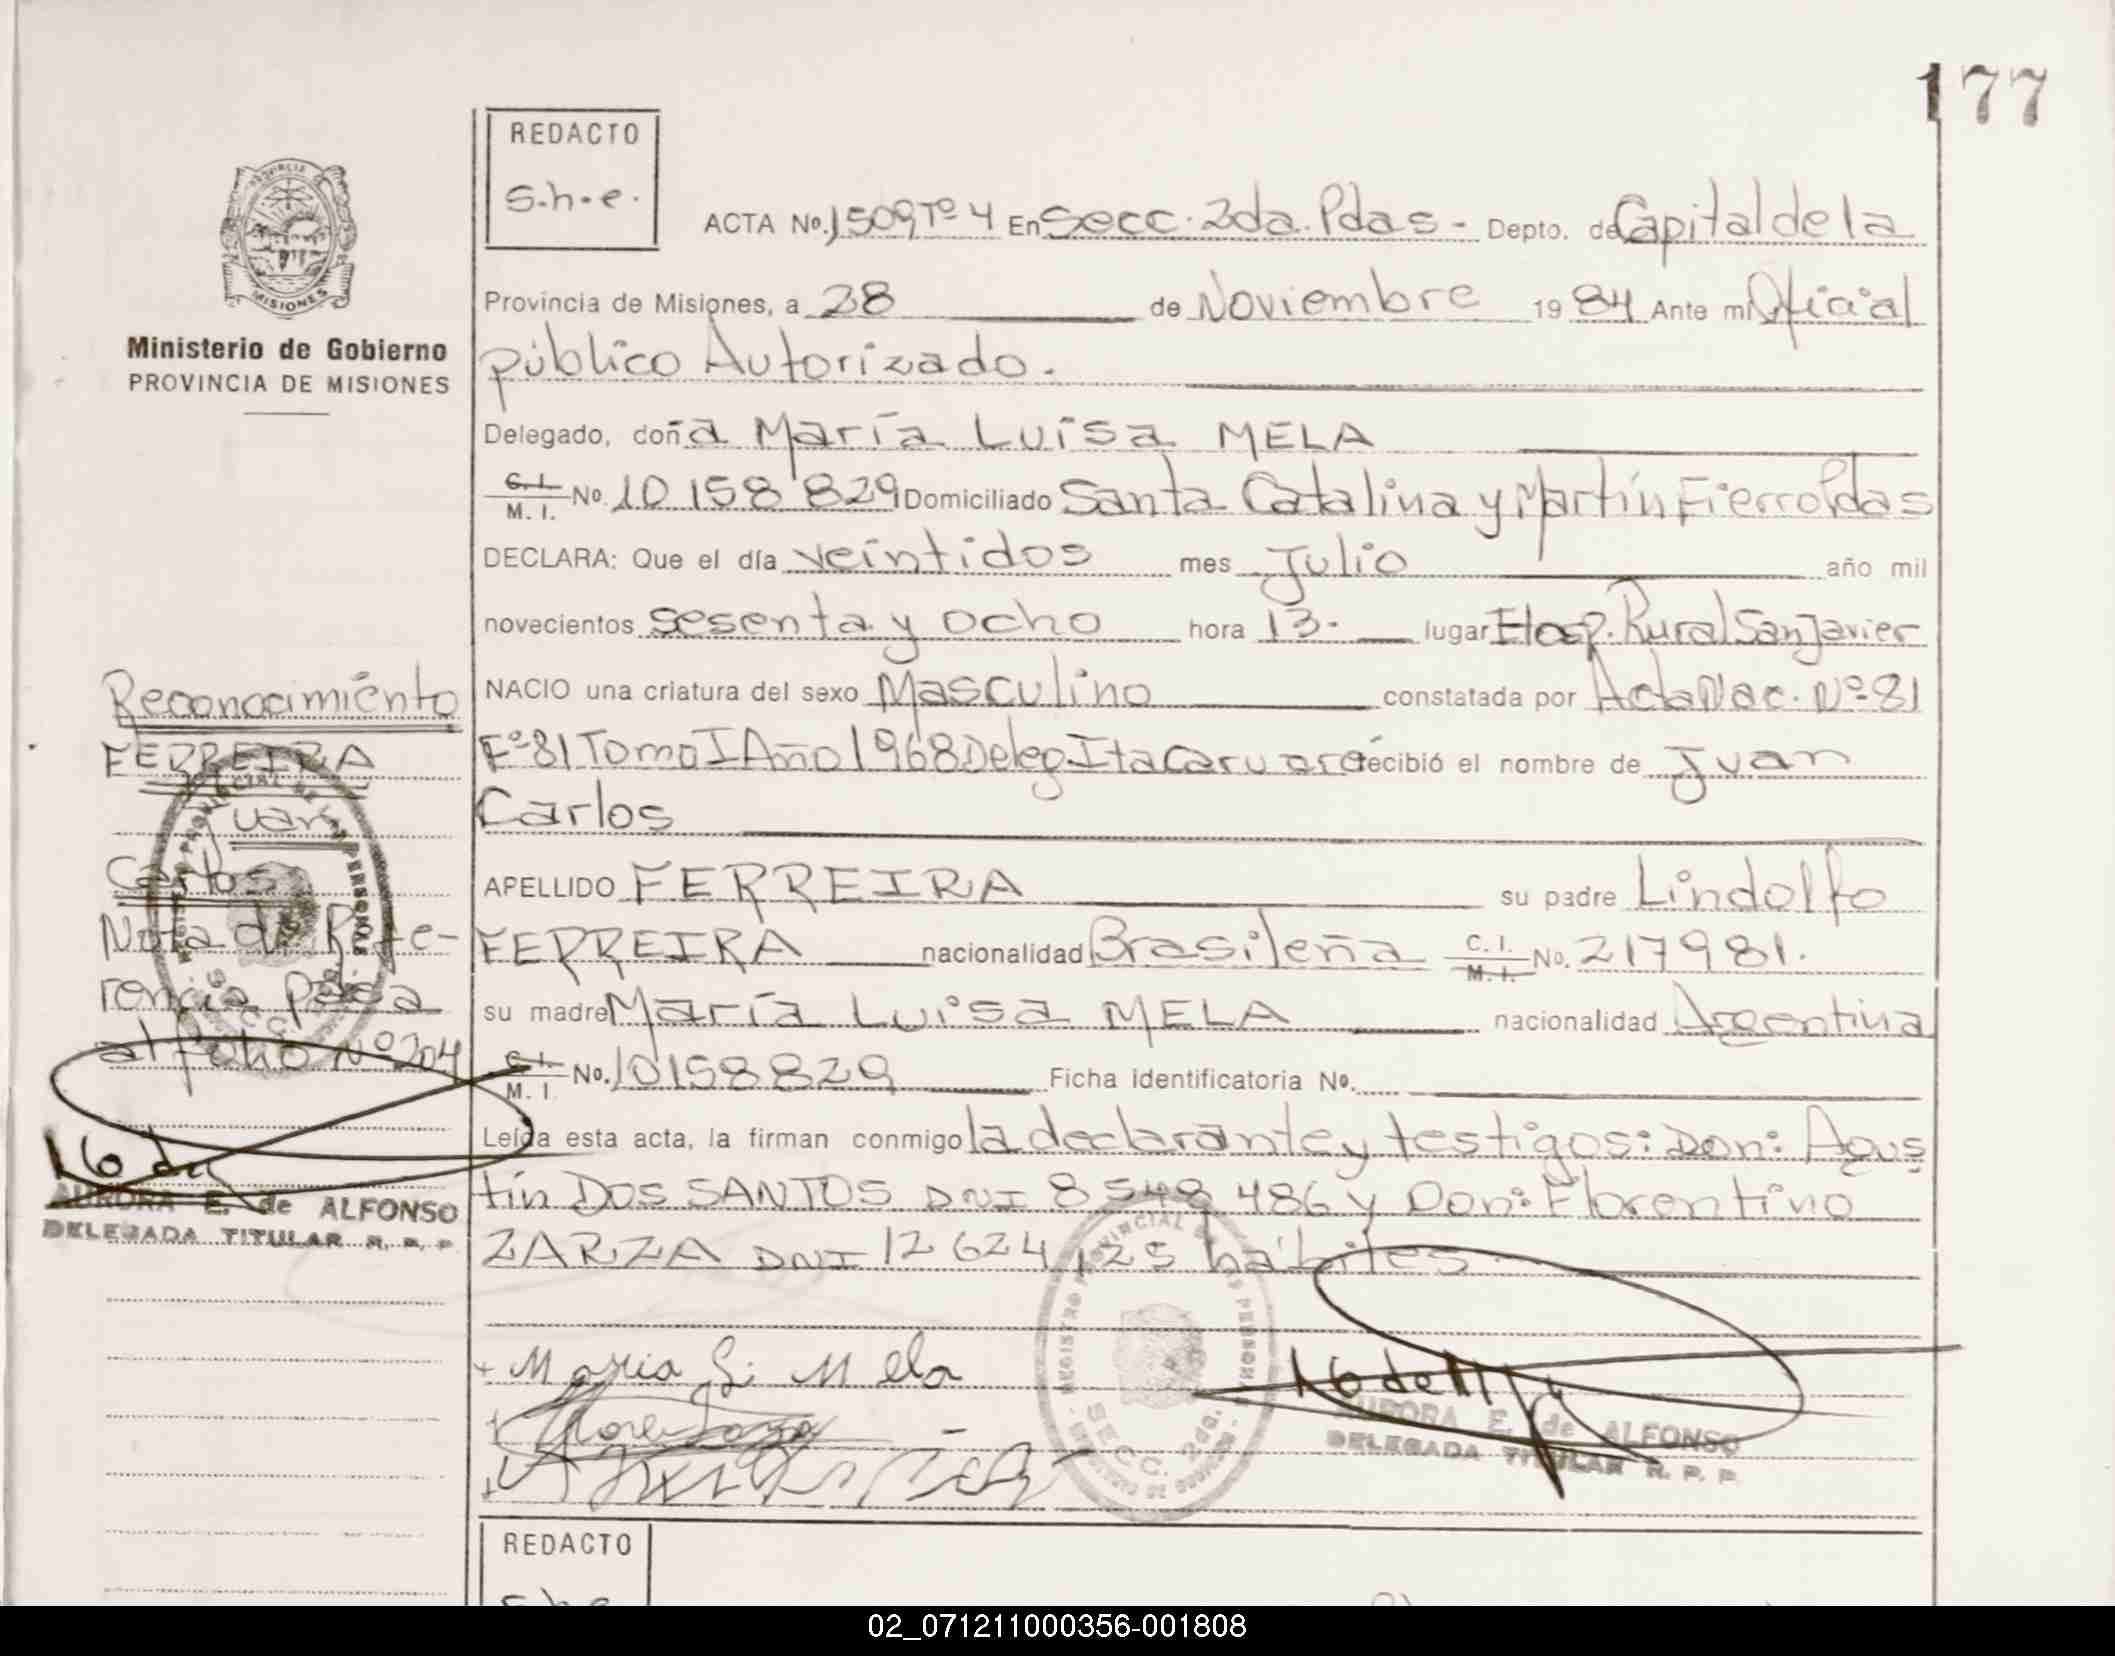 177
REDACTO
S.h.e.
ACTA Nº. 1509 Tº 4 En Secc. 2da. Pdas - Depto. de Capital de la
Provincia de Misiones, a 28 de Noviembre 1984 Ante mi Oficial
público Autorizado.
Delegado, doña María Luisa MELA
C. I. / M. I. Nº. 10 158 829 Domiciliado Santa Catalina y Martín Fierro Pdas
DECLARA: Que el día veintidos mes Julio año mil
novecientos sesenta y ocho hora 13. lugar Hosp. Rural San Javier
NACIO una criatura del sexo Masculino constatada por Acta Nac. Nº 81
Fº 81 Tomo I Año 1968 Deleg Itacaruare recibió el nombre de Juan
Carlos
APELLIDO FERREIRA su padre Lindolfo
FERREIRA nacionalidad Brasileña C. I. / M. I. Nº. 217981.
su madre María Luisa MELA nacionalidad Argentina
C. I. / M. I. Nº. 10158829 Ficha identificatoria Nº.
Leída esta acta, la firman conmigo la declarante y testigos: Don: Agus
tín DOS SANTOS DNI 8 548 486 y Don: Florentino
ZARZA DNI 12 624 125 hábiles
Maria L. Mela
REGISTRO PROVINCIAL DE LAS PERSONAS
SECC. 2da.
AURORA E. de ALFONSO
DELEGADA TITULAR R. P. P.
PROVINCIA
MISIONES
Ministerio de Gobierno
PROVINCIA DE MISIONES
Reconocimiento
FERREIRA
Juan
Carlos
Nota de Refe-
rencia Pasa
al folio Nº 204
REGISTRO PROVINCIAL DE LAS PERSONAS
SECC.
AURORA E. de ALFONSO
DELEGADA TITULAR R. P. P.
REDACTO
S.h.e.
02_071211000356-001808